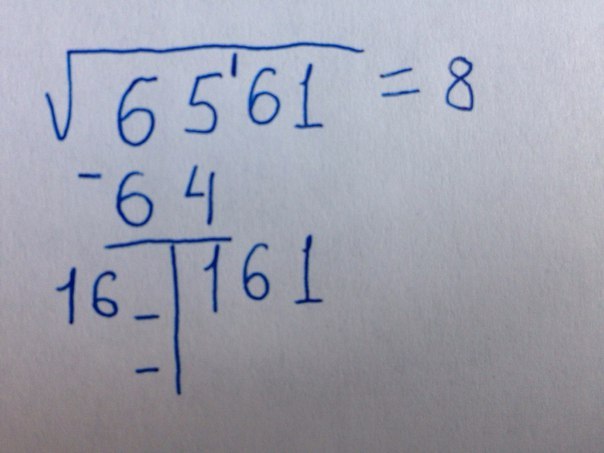 √65'61 = 8
-64
16_ | 161
_ |